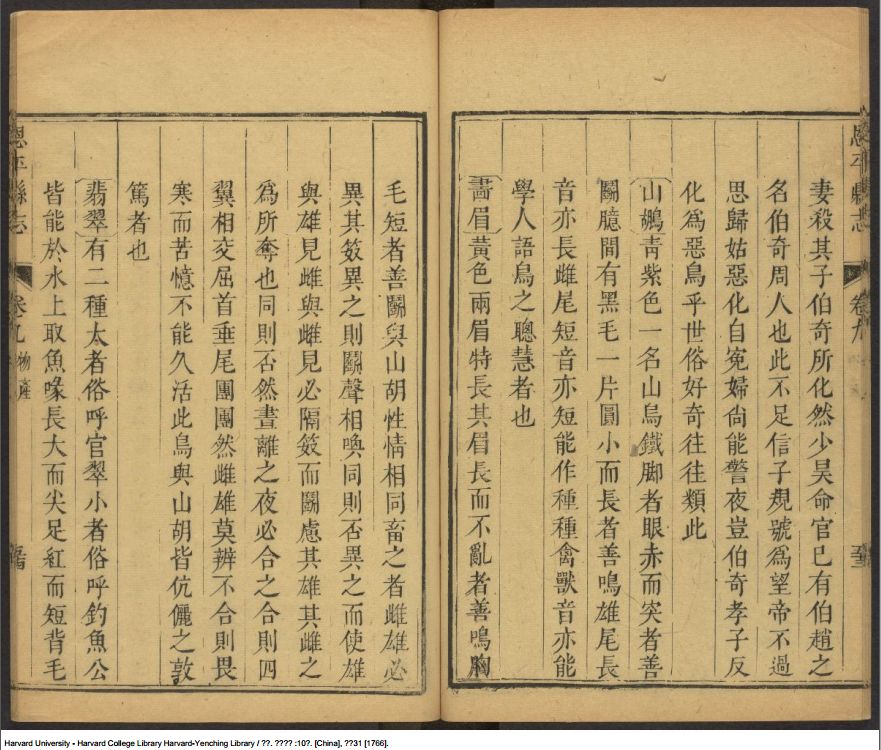 恩平縣志
卷九
妻殺其子伯奇所化然少昊命官已有伯趙之
名伯奇周人也此不足信子規號為望帝不過
思歸姑惡化自寃婦尚能警夜豈伯奇孝子反
化為惡鳥乎世俗好奇往往類此
山鷓青紫色一名山烏鐵脚者眼赤而突者善
鬭臆間有黑毛一片圓小而長者善鳴雄尾長
音亦長雌尾短音亦短能作種種禽獸音亦能
學人語鳥之聰慧者也
畵眉黃色兩眉特長其眉長而不亂者善鳴胸
毛短者善鬭與山胡性情相同畜之者雌雄必
異其笯異之則鬭聲相喚同則否異之而使雄
與雄見雌與雌見必隔笯而鬭慮其雄其雌之
為所奪也同則否然晝離之夜必合之合則四
翼相交屈首垂尾團團然雌雄莫辨不合則畏
寒而苦憶不能久活此鳥與山胡皆伉儷之敦
篤者也
翡翠有二種大者俗呼官翠小者俗呼釣魚公
皆能於水上取魚喙長大而尖足紅而短背毛
恩平縣志
卷九
物產
Harvard University - Harvard College Library Harvard-Yenching Library / ??. ???? :10?. [China], ??31 [1766].